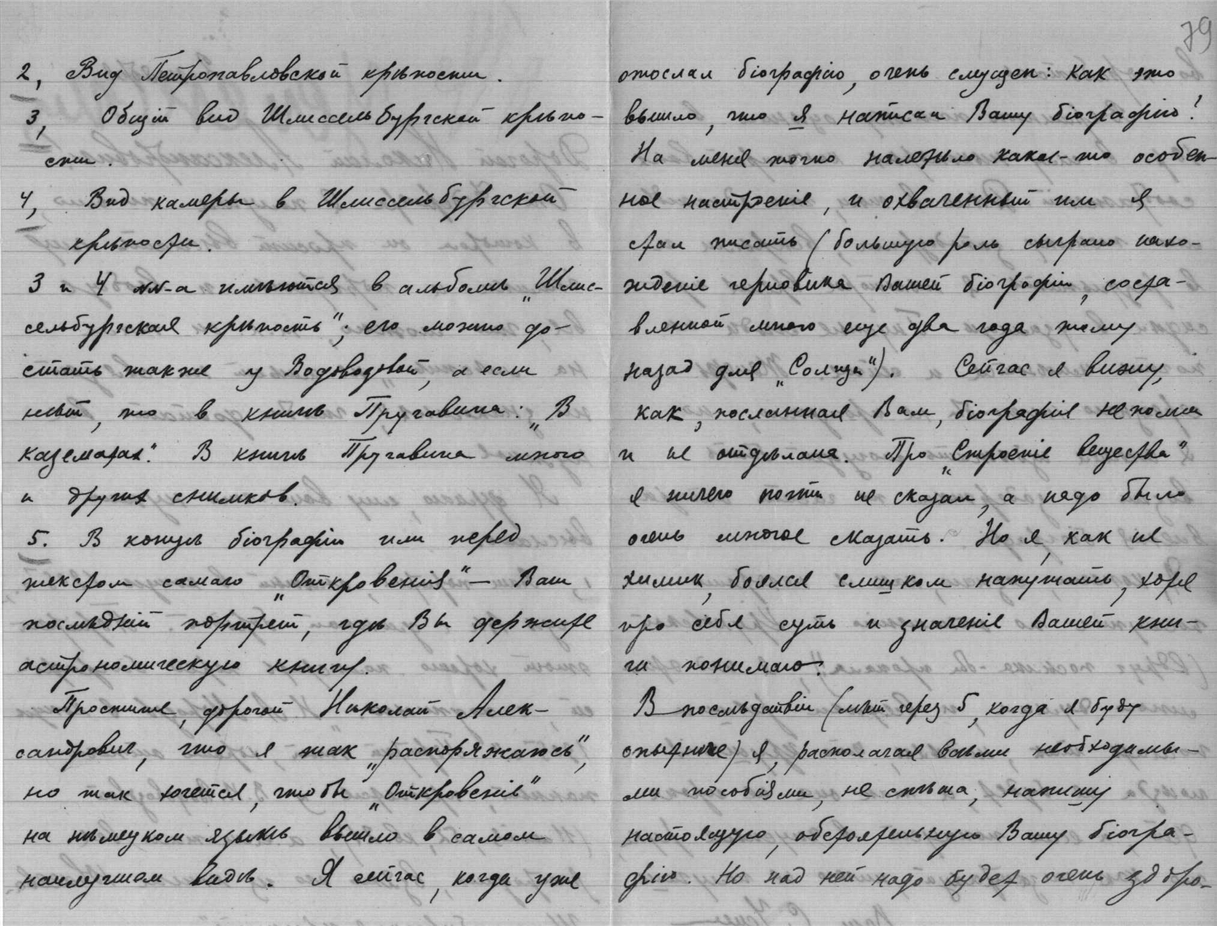 2, Вид Петропавловской крѣпости.
3, Общій вид Шлиссельбургской крѣпо-
сти.
4, Вид камеры в Шлиссельбургской
крѣпости.
3 и 4 №№-а имѣются в альбомѣ „Шлис-
сельбургская крѣпость"; его можно до-
стать также у Водовозовой, а если
нѣт, то в книгѣ Пругавина: „В
казематах". В книгѣ Пругавина много
и других снимков.
5. В концѣ біографіи или перед
текстом самаго „Откровенія" — Ваш
послѣдній портрет, гдѣ Вы держите
астрономическую книгу.
Простите, дорогой Николай Алек-
сандрович, что я так „распоряжаюсь",
но так хочется, чтобы „Откровеніе"
на нѣмецком языкѣ вышло в самом
наилучшем видѣ. Я сейчас, когда уже
79
отослал біографію, очень смущен: как это
вышло, что я написал Вашу біографію!
На меня точно налетѣло какое-то особен-
ное настроеніе, и охваченный им я
стал писать (большую роль сыграло нахо-
жденіе черновика Вашей біографіи, соста-
вленной мною еще два года тому
назад для „Солнца"). Сейчас я вижу,
как, посланная Вам, біографія неполна
и не отдѣлана. Про „Строеніе вещества"
я ничего почти не сказал, а надо было
очень многое сказать. Но я, как не
химик, боялся слишком напутать, хотя
про себя суть и значеніе Вашей кни-
ги понимаю.
В послѣдствіи (лѣт через 5, когда я буду
опытнѣе) я, располагая всѣми необходимы-
ми пособіями, не спѣша, напишу
настоящую, обстоятельную Вашу біогра-
фію. Но над ней надо будет очень здоро-